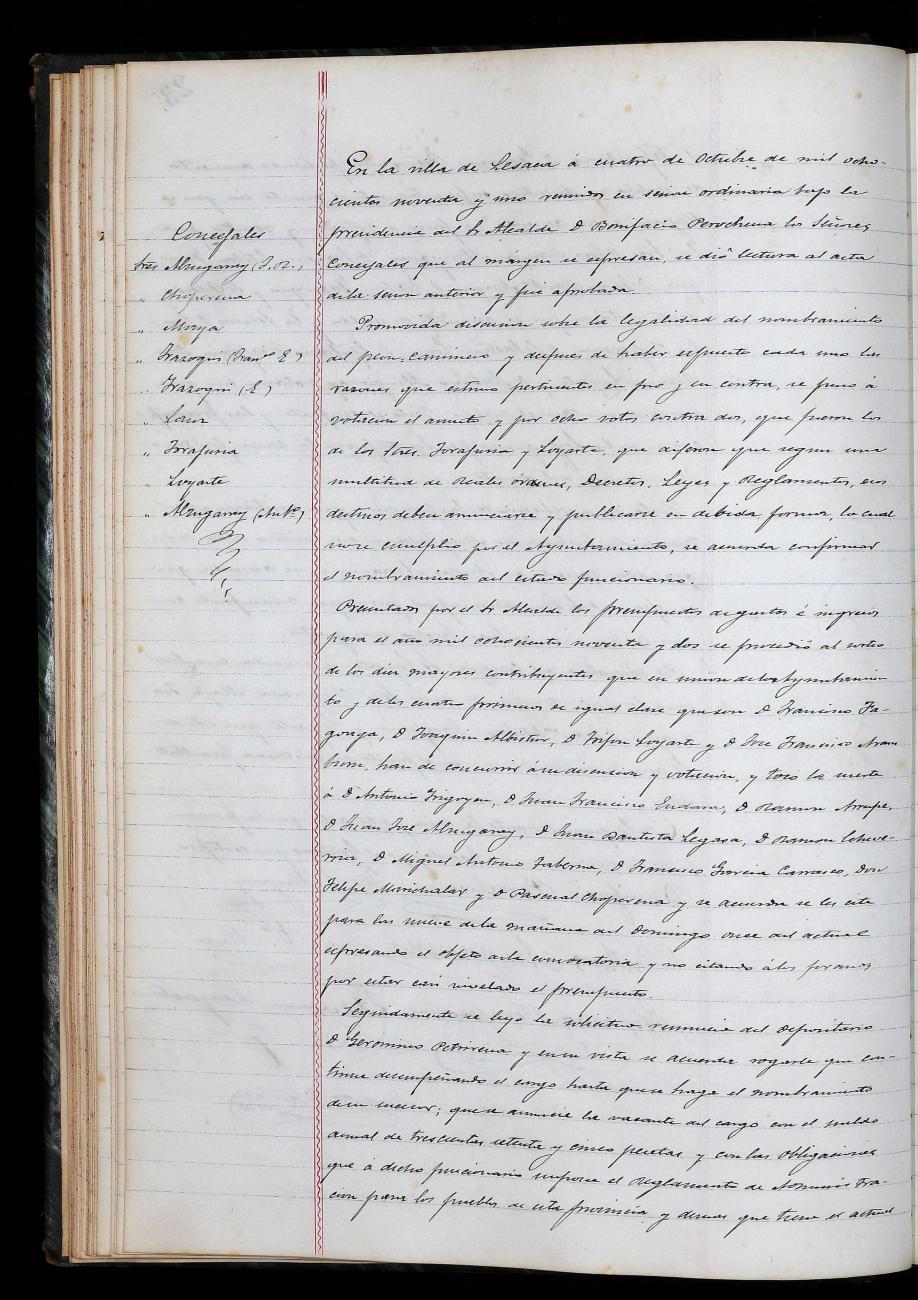 Concejales
Sres Alzugaray (J.R.)
" Choperena
" Moya
" Irazoqui (Franco E)
" Irazoqui (E)
" Lasa
" Iorajuria
" Loyarte
" Alzugaray (Anto)
En la villa de Lesaca á cuatro de Octubre de mil ocho-
cientos noventa y uno reunidos en sesion ordinaria bajo la
presidencia del Sr Alcalde D Bonifacio Perochena los Señores
Concejales que al margen se espresan, se dió lectura al acta
dela sesion anterior y fué aprobada.
Promovida discusion sobre la legalidad del nombramiento
del peon-caminero y despues de haber espuesto cada uno las
razones que estimó pertinentes en pro y en contra, se puso á
votacion el asunto y por ocho votos contra dos, que fueron los
de los Sres. Iorajuria y Loyarte, que dijeron que segun una
multitud de Reales órdenes, Decretos, Leyes y Reglamentos, esos
destinos deben anunciarse y publicarse en debida forma, lo cual
no se cumplió por el Ayuntamiento, se acuerda confirmar
el nombramiento del citado funcionario.
Presentados por el Sr Alcalde los presupuestos de gastos é ingresos
para el año mil ochocientos noventa y dos se procedió al sorteo
de los diez mayores contribuyentes que en union delos Ayuntamien
to y delos cuatro primeros de igual clase que son D Francisco Fa-
goaga, D Joaquin Albistur, D Trifon Loyarte y D José Francisco Aram
buru, han de concurrir á su discusion y votacion, y tocó la suerte
á D Antonio Irigoyen, D Juan Francisco Endara, D Ramon Arrupe,
D Juan José Alzugaray, D Juan Bautista Legasa, D Ramon Echeve-
rria, D Miguel Antonio Taberna, D Francisco Garcia Carrasco, Don
Felipe Marichalar y D Pascual Choperena y se acuerda se les cite
para las nueve dela mañana del Domingo once del actual
espresando el objeto dela convocatoria y no citando álos foranos
por estar casi nivelado el presupuesto.
Seguidamente se leyó la solicitud renuncia del Depositario
D Geronimo Petrirena y en su vista se acuerda rogarle que con-
tinue desempeñando el cargo hasta que se haga el nombramiento
de su sucesor; que se anuncie la vacante del cargo con el sueldo
anual de trescientas setenta y cinco pesetas y con las obligaciones
que á dicho funcionario impone el Reglamento de Administra-
cion para los pueblos de esta provincia y demas que tiene el actual